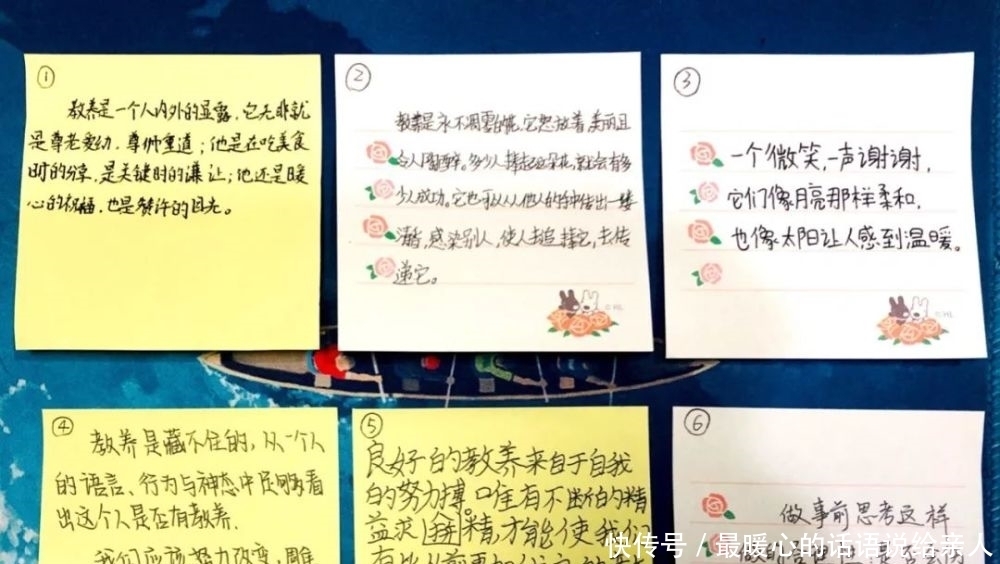 ①
教养是一个人内外的显露，它无非就
是尊老爱幼，尊师重道；他是在吃美食
时的分享，是关键时的谦让；他还是暖
心的祝福，也是赞许的目光。
②
教养是永不凋零的花，它怒放着，美丽且
令人陶醉。多少人捧起这朵花，就会有多
少成功。它也可以从他人的手中传出一缕
清香，感染别人，使人去追捧它，去传
递它。
©HL
③
一个微笑，一声谢谢，
它们像月亮那样柔和，
也像太阳让人感到温暖。
©HL
④
教养是藏不住的，从一个人
的语言、行为与神态中足够看
出这个人是否有教养.
我们应该努力改变，雕
⑤
良好的教养来自于自我
的努力搏。唯有不断的精
益求精，才能使我们
⑥
做事前思考这样
快传号 / 最暖心的话语说给亲人